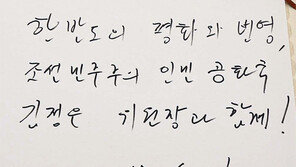 한반도의 평화와 번영,
조선민주주의 인민 공화국
김정은 위원장과 함께!